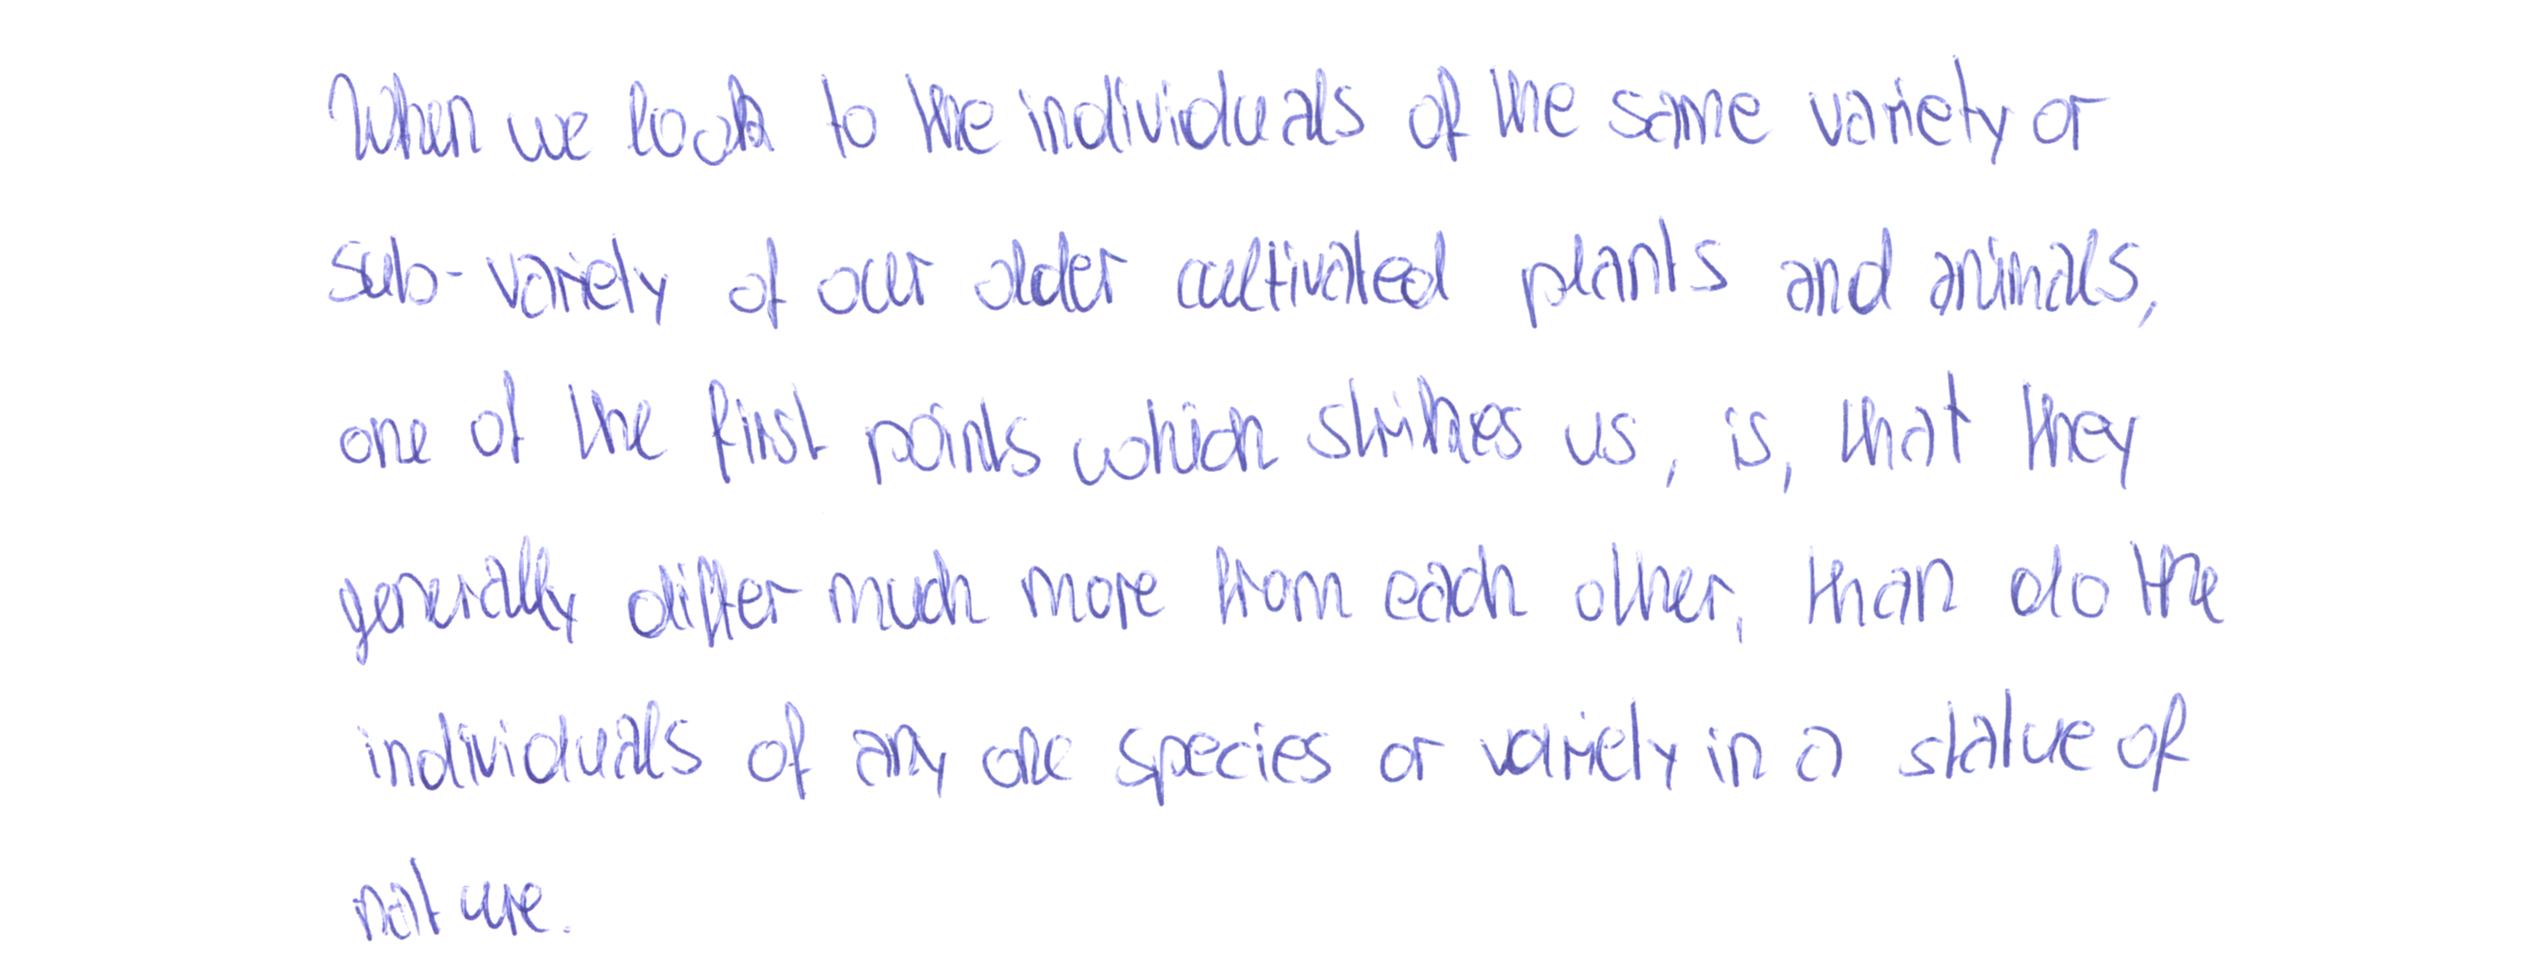 When we look to the individuals of the same variety or
sub-variety of our older cultivated plants and animals,
one of the first points which strikes us, is, that they
generally differ much more from each other, than do the
individuals of any one species or variety in a statue of
nature.